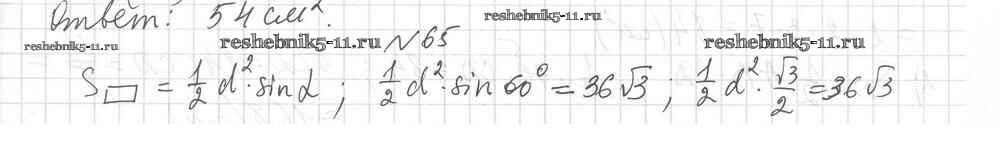 Ответ: 54 см².
reshebnik5-11.ru
reshebnik5-11.ru reshebnik5-11.ru reshebnik5-11.ru
№65
S▭ = 1/2 d²·sinα ; 1/2 d²·sin 60° = 36√3 ; 1/2 d²·√3/2 = 36√3